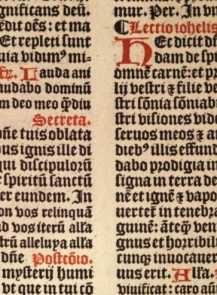 gnificans deū.
edût oēs: et ma
Et repleti sunt
uia vidim⁹ mi⸗
Lauda ani
audabo dominū
am deo meo q̄diu
Secreta.
dñe tuis oblata
us ignis ille di
qui discipulorū
spiritū sanctū
er eundem. In
on vos relinquā
ad vos iterū alla
strū alleluya alla
dñe Postcōio.
mysterij humi
ve que in tui cō
mur. Per. In vni
Lectio iohelis
Hec dicit dn
dam de spi
omnē carnē: et pr
lij vestri ⁊ filie ve
stri sōnia sōniab
stri visiones vide
seruos meos ⁊ an
dieb⁹ illis effund
dabo prodigia in
signa in terra de
nē et ignē ⁊ vapo
uertet in tenebra
guinē: āteq̄ ven
gnus et horribil
cunq̄ inuocauer
uus erit. Alla.
viuificat: caro aū